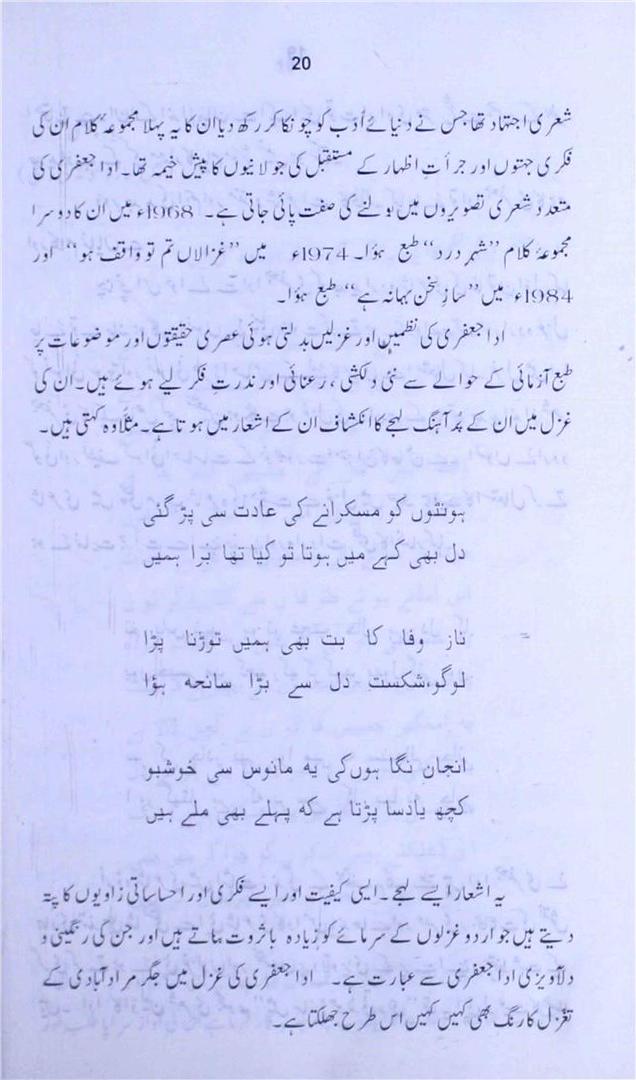 20
شعری اجتہاد تھا جس نے دنیائے اَدب کو چونکا کر رکھ دیا ان کا یہ پہلا مجموعہ کلام ان کی
فکری جہتوں اور جرأتِ اظہار کے مستقبل کی جولانیوں کا پیش خیمہ تھا۔ ادا جعفری کی
متعدد شعری تصویروں میں بولنے کی صفت پائی جاتی ہے۔ 1968ء میں ان کا دوسرا
مجموعۂ کلام ”شہرِ درد“ طبع ہؤا۔ 1974ء میں ”غزالاں تم تو واقف ہو“ اور
1984ء میں ”سازِ سخن بہانہ ہے“ طبع ہؤا۔
ادا جعفری کی نظمیں اور غزلیں بدلتی ہوئی عصری حقیقتوں اور موضوعات پر
طبع آزمائی کے حوالے سے نئی دلکشی، رعنائی اور ندرتِ فکر لیے ہوئے ہیں۔ ان کی
غزل میں ان کے پُر آہنگ لہجے کا انکشاف ان کے اشعار میں ہوتا ہے۔ مثلاً وہ کہتی ہیں۔
ہونٹوں کو مسکرانے کی عادت سی پڑ گئی
دل بھی کہے میں ہوتا تو کیا تھا برا ہمیں
ناز وفا کا بت بھی ہمیں توڑنا پڑا
لوگو،شکست دل سے بڑا سانحہ ہؤا
انجان نگا ہوں کی یہ مانوس سی خوشبو
کچھ یادسا پڑتا ہے کہ پہلے بھی ملے ہیں
یہ اشعار ایسے لہجے۔ ایسی کیفیت اور ایسے فکری اور احساساتی زاویوں کا پتہ
دیتے ہیں جو اردو غزلوں کے سرمائے کو زیادہ باثروت بناتے ہیں اور جن کی رنگینی و
دلآویزی ادا جعفری سے عبارت ہے۔ ادا جعفری کی غزل میں جگر مراد آبادی کے
تغزل کا رنگ بھی کہیں کہیں اس طرح جھلکتا ہے۔